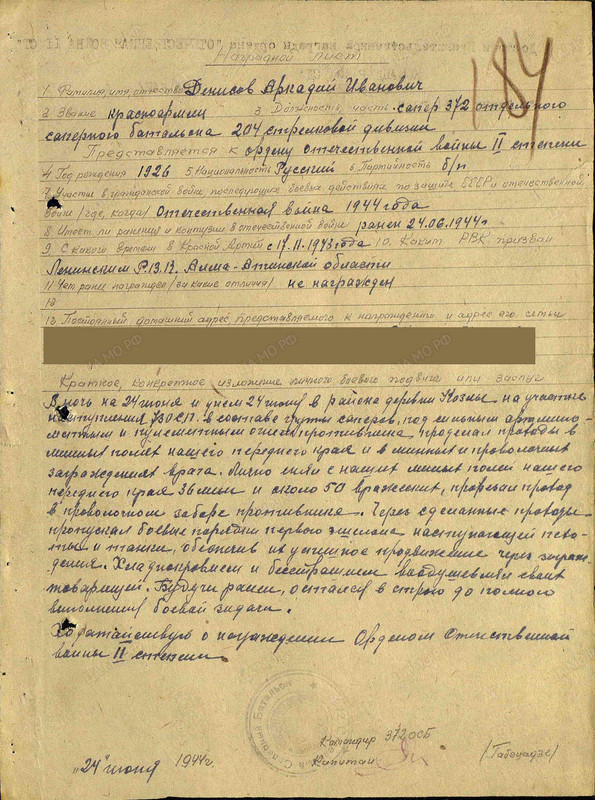 184
Наградной лист
1 Фамилия, имя, отчество Денисов Аркадий Иванович
2 Звание красноармеец 3. Должность, часть сапер 372 отдельного
саперного батальона 204 стрелковой дивизии
Представляется к ордену отечественной войны II степени
4 Год рождения 1926 5 Национальность Русский 6 Партийность б/п
7 Участие в гражданской войне, последующих боевых действиях по защите СССР и отечественной
войне (где, когда) Отечественная война 1944 года
8 Имеет ли ранения и контузии в отечественной войне ранен 24.06.1944г
9. С какого времени в Красной Армии с 17.11.1943 года 10. Каким РВК призван
Ленинским Р.В.К. Алма-Атинской области
11 Чем ранее награжден (за какие отличия) не награжден
12
13 Постоянный домашний адрес представляемого к награждению и адрес его семьи
Краткое, конкретное изложение личного боевого подвига или заслуг
В ночь на 24 июня и днем 24 июня в районе деревни Козлы на участке
наступления 730 СП. в составе группы саперов, под сильным артмино-
метным и пулеметным огнем противника проделал проходы в
минных полях нашего переднего края и в минных и проволочных
заграждениях врага. Лично снял с наших минных полей нашего
переднего края 36 мин и около 50 вражеских, прорезал проход
в проволочном заборе противника. Через сделанные проходы
пропускал боевые порядки первого эшелона наступающей пехо-
ты и танки, обеспечив их успешное продвижение через заграж-
дения. Хладнокровием и бесстрашием воодушевлял своих
товарищей. Будучи ранен, остался в строю до полного
выполнения боевой задачи.
Ходатайствую о награждении Орденом Отечественной
войны II степени
Командир 372 ОСБ
Капитан (Табагадзе)
"24" июня 1944г.